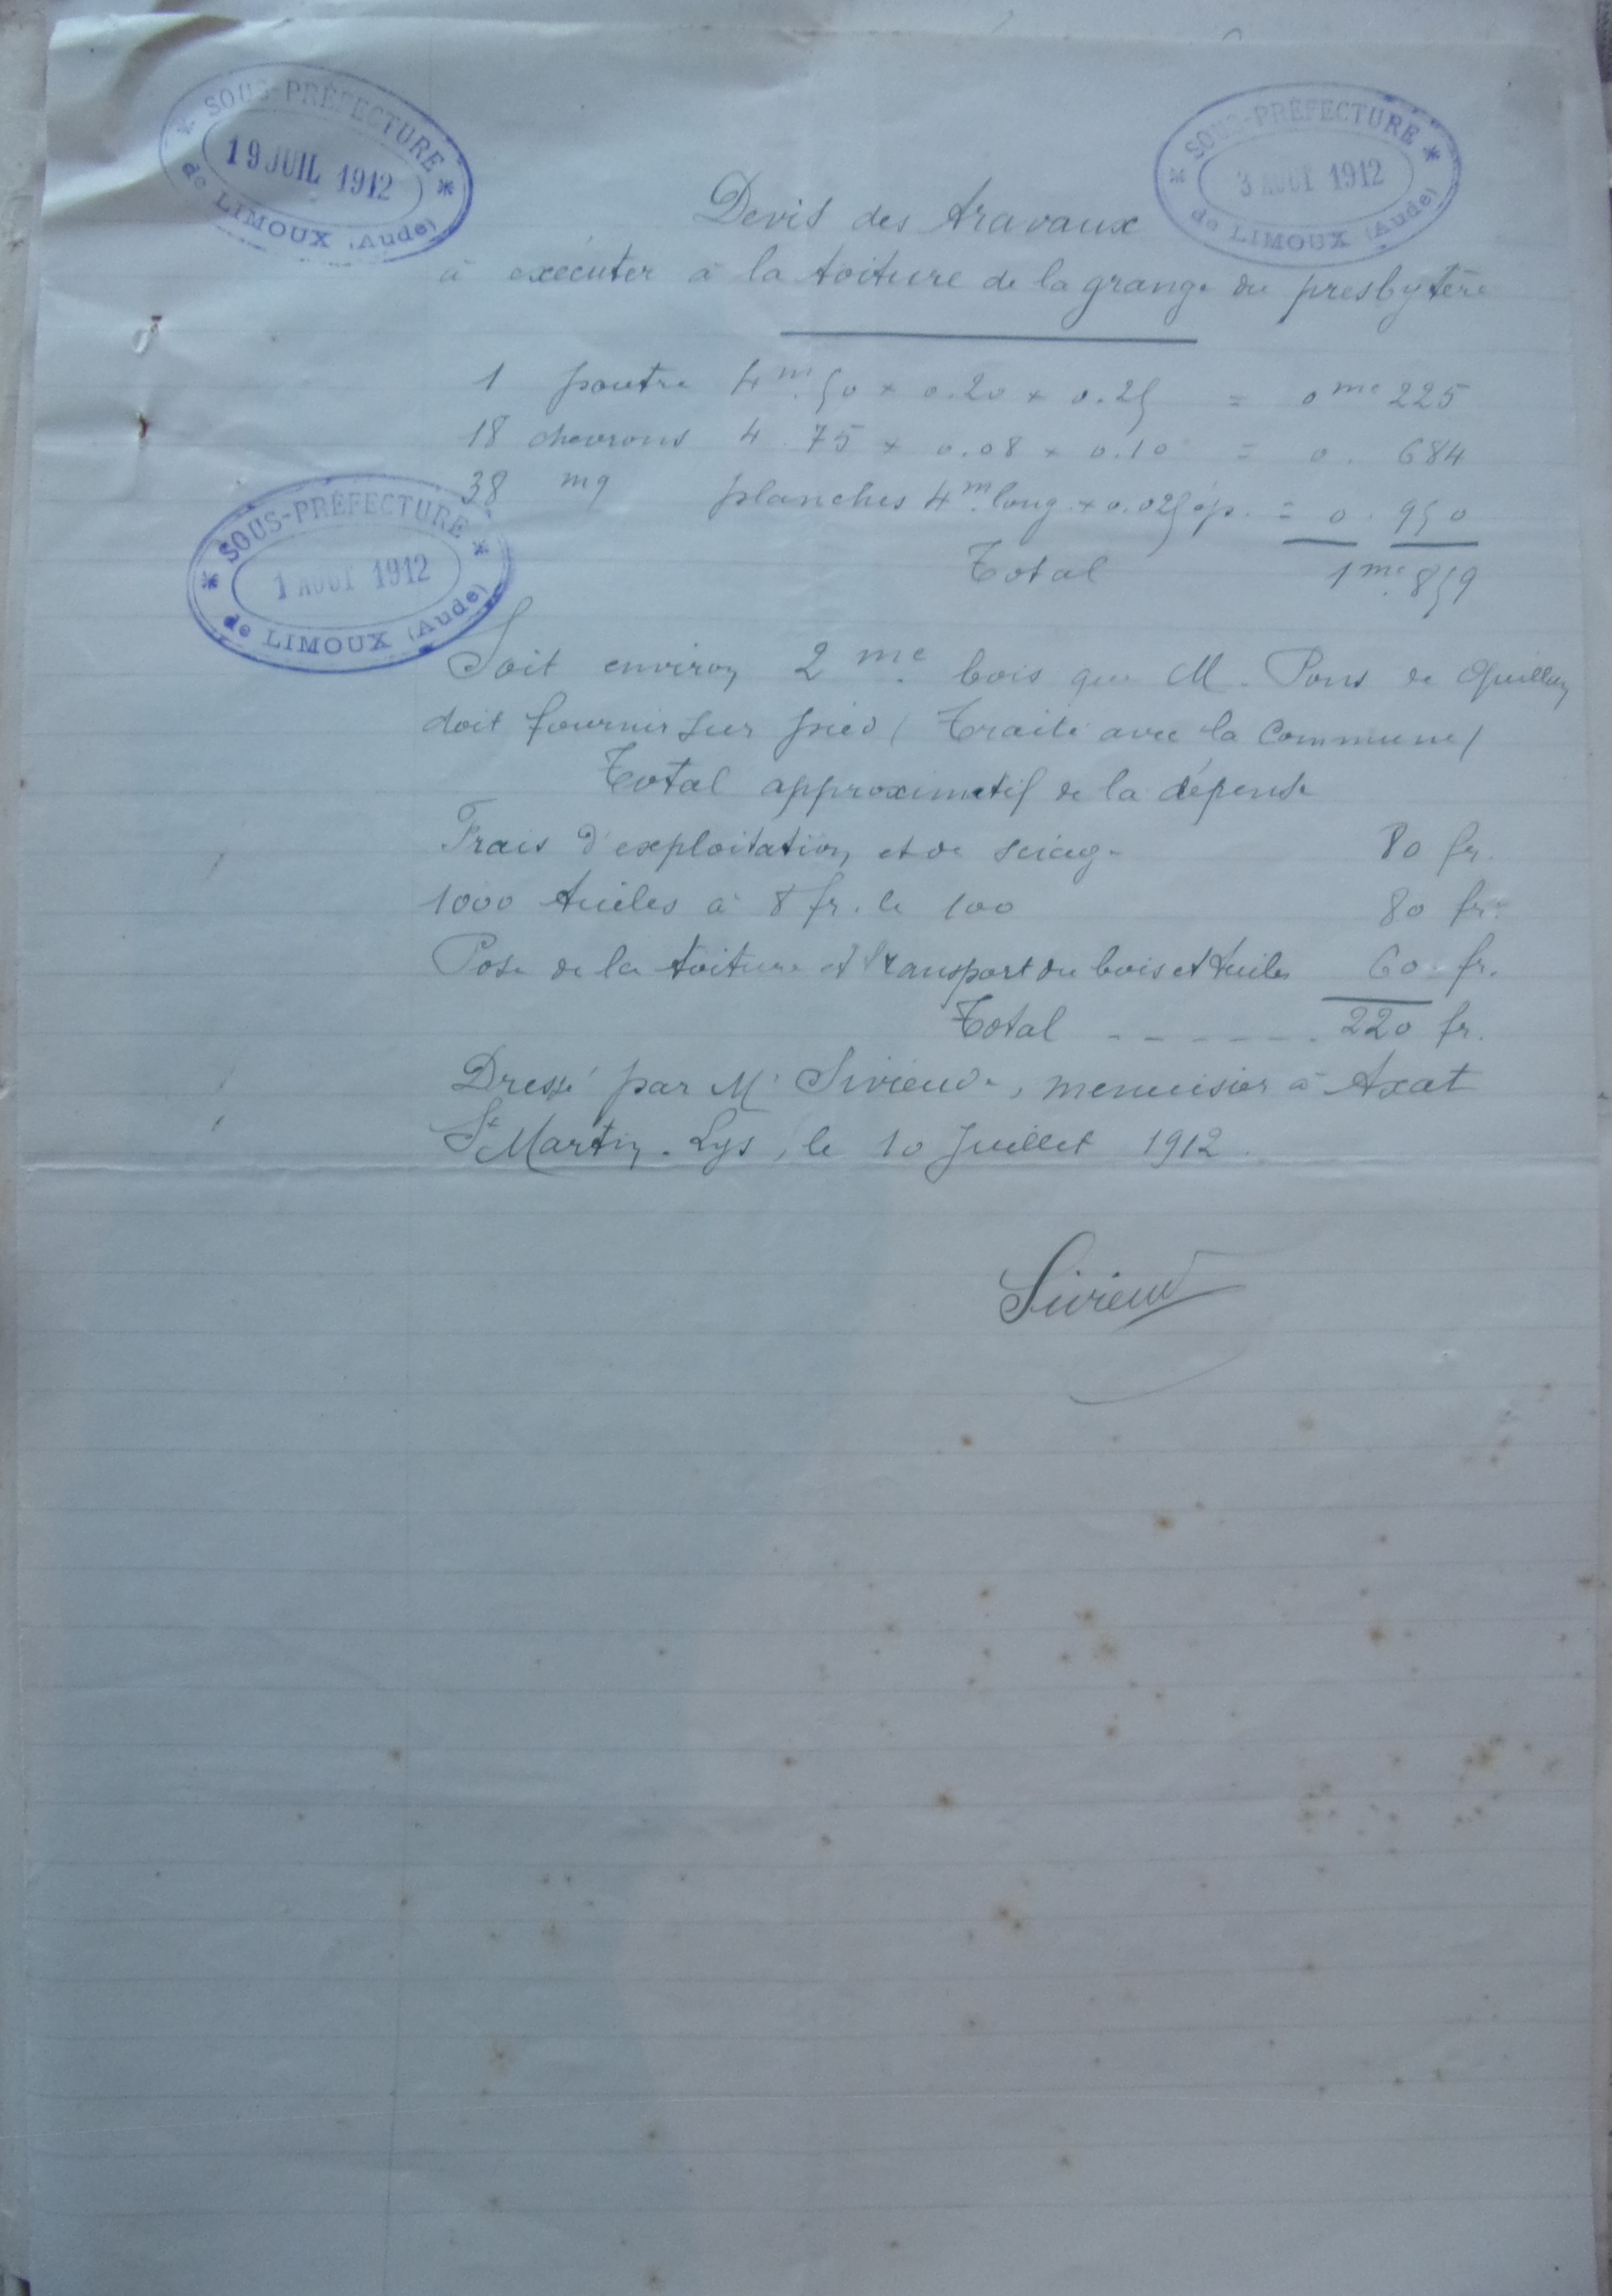 SOUS-PRÉFECTURE
19 JUIL 1912
de LIMOUX (Aude)
SOUS-PRÉFECTURE
3 AOUT 1912
de LIMOUX (Aude)
Devis des travaux
à exécuter à la toiture de la grange du presbytère
1 poutre 4m.50 × 0.20 × 0.25 = 0mc 225
18 chevrons 4.75 × 0.08 × 0.10 = 0. 684
38 mq planches 4m. long. × 0.025 ép. = 0. 950
Total 1mc.859
SOUS-PRÉFECTURE
1 AOUT 1912
de LIMOUX (Aude)
Soit environ 2mc. bois que M. Pons de Quillan
doit fournir sur pied (Traité avec la Commune)
Total approximatif de la dépense
Frais d'exploitation et de sciage 80 fr.
1000 tuiles à 8 fr. le 100 80 fr.
Pose de la toiture et transport du bois et tuiles 60. fr.
Total ------. 220 fr.
Dressé par Mr Sivieude, menuisier à Axat
St Martin-Lys, le 10 Juillet 1912.
Sivieude